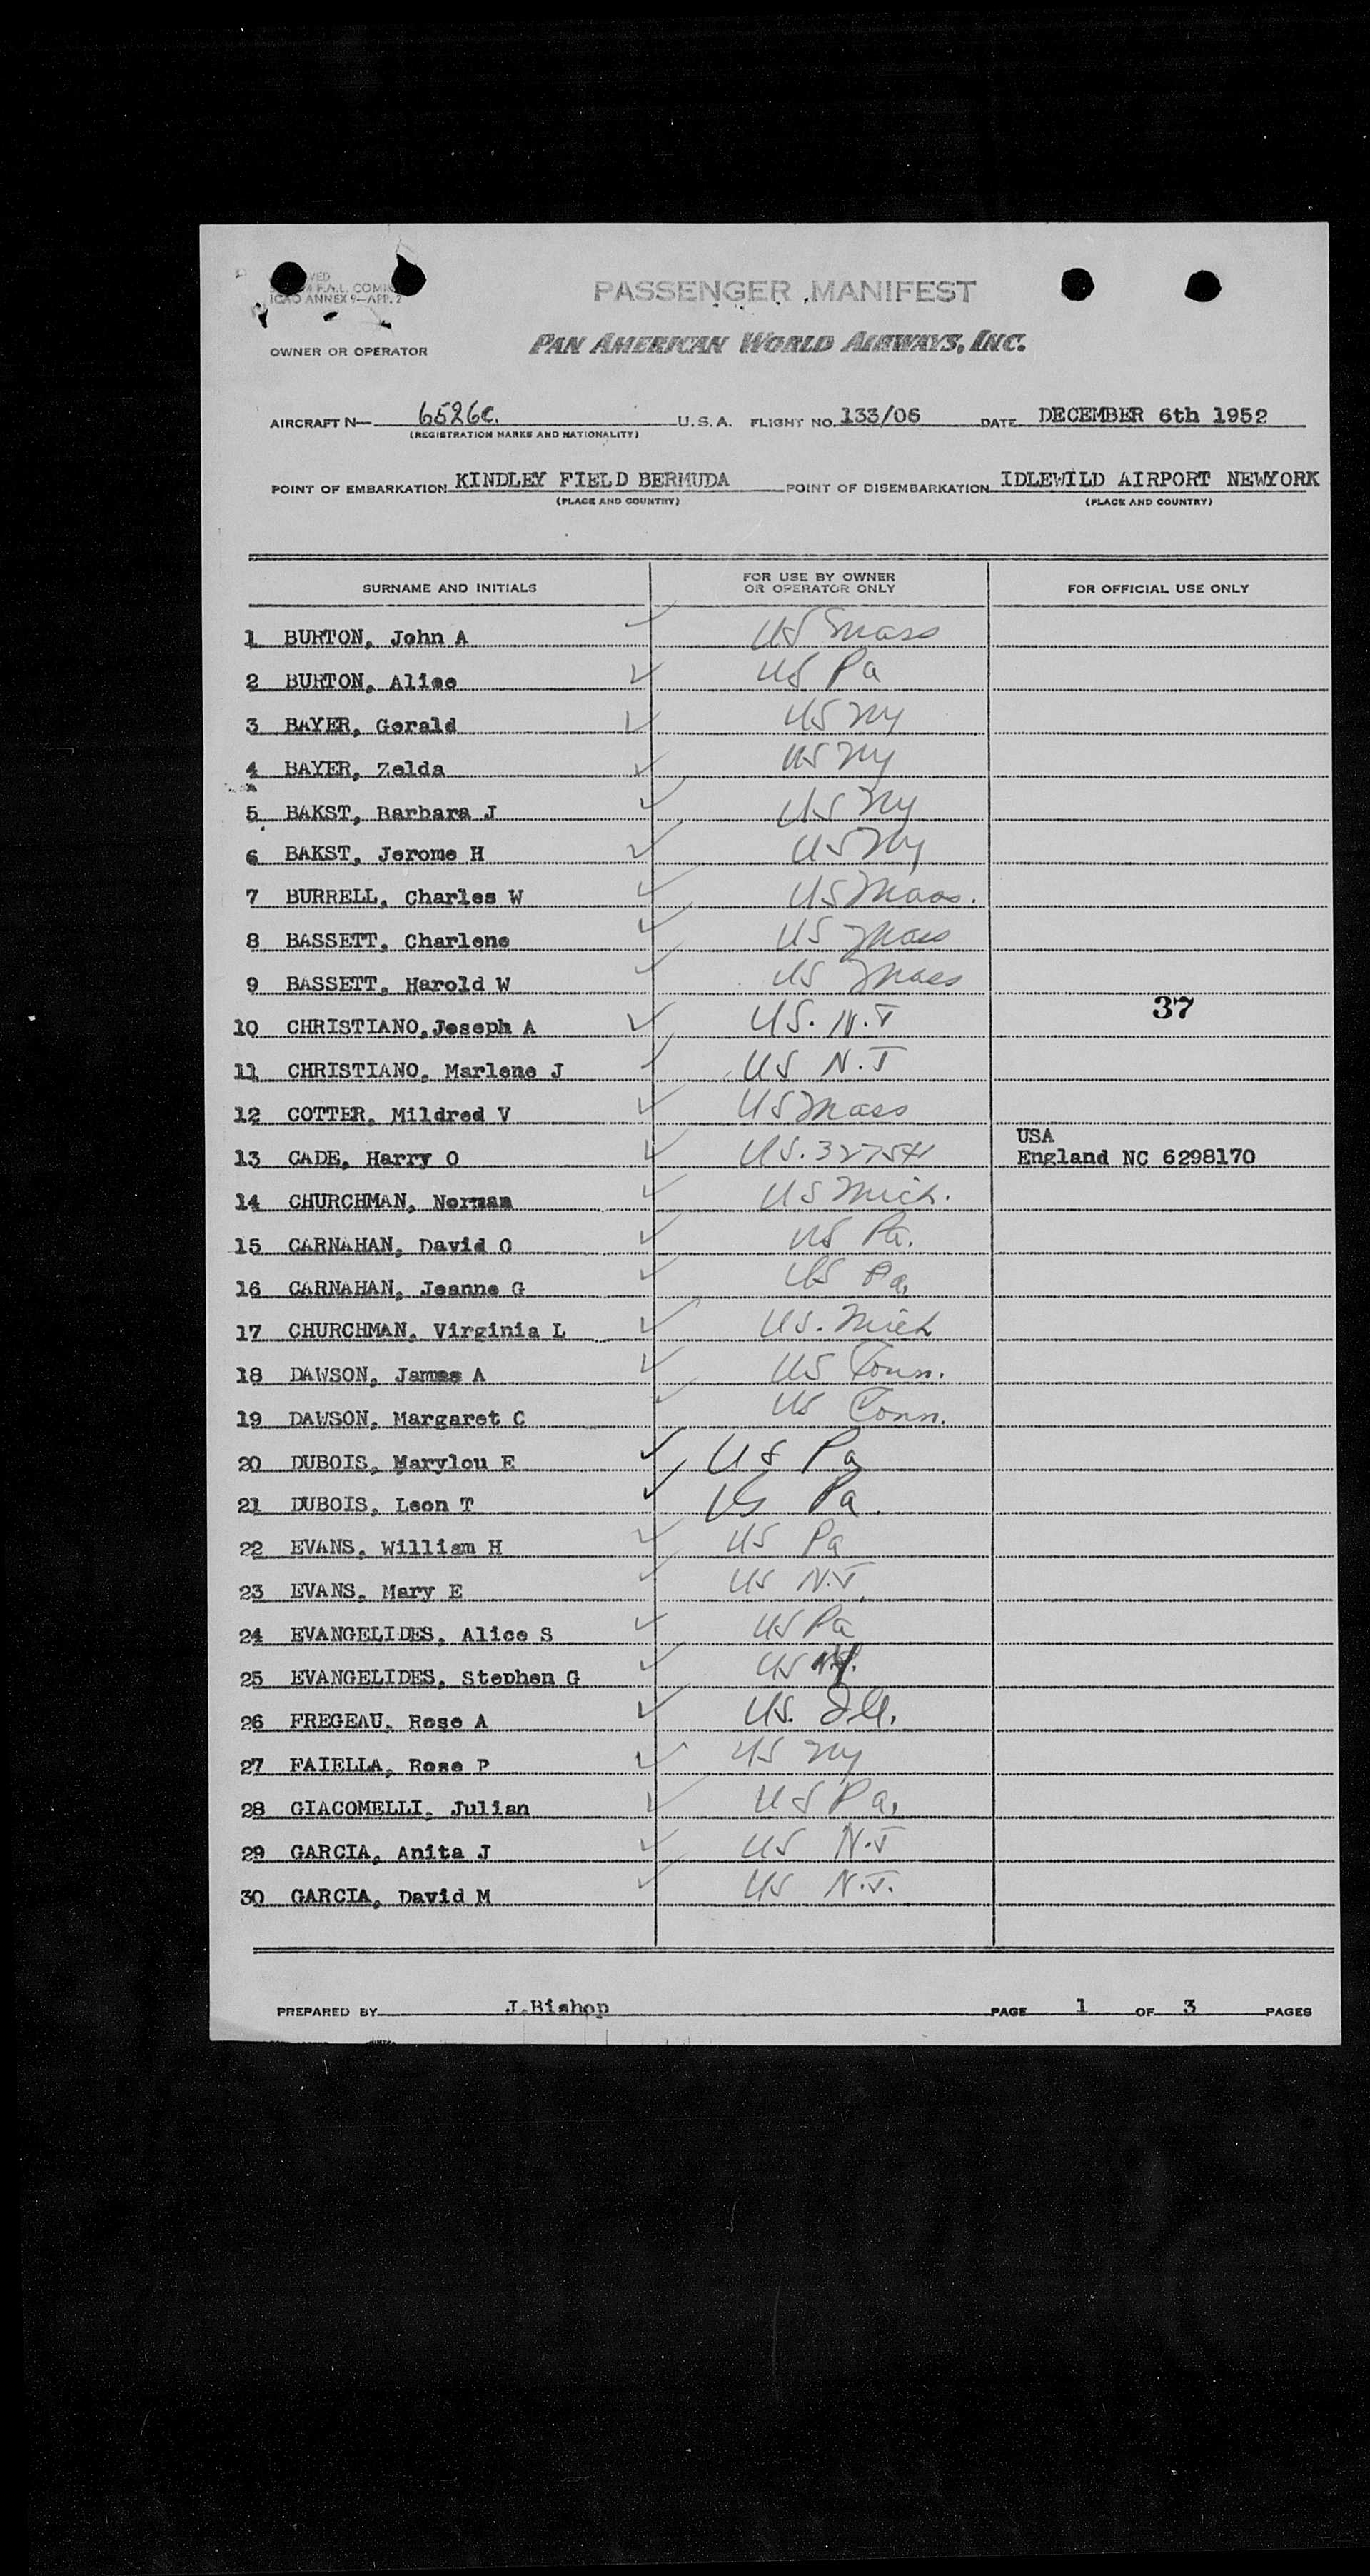 F.A.L. COM
ICAO ANNEX 9—APP. 2
PASSENGER MANIFEST
OWNER OR OPERATOR PAN AMERICAN WORLD AIRWAYS, INC.
AIRCRAFT N— 6526C. U.S.A. FLIGHT NO. 133/06 DATE DECEMBER 6th 1952
(REGISTRATION MARKS AND NATIONALITY)
POINT OF EMBARKATION KINDLEY FIELD BERMUDA POINT OF DISEMBARKATION IDLEWILD AIRPORT NEWYORK
(PLACE AND COUNTRY) (PLACE AND COUNTRY)
SURNAME AND INITIALS FOR USE BY OWNER OR OPERATOR ONLY FOR OFFICIAL USE ONLY
1 BURTON, John A US Mass
2 BURTON, Alice US Pa
3 BAYER, Gerald US NY
4 BAYER, Zelda US NY
5 BAKST, Barbara J US NY
6 BAKST, Jerome H US NY
7 BURRELL, Charles W US Mass.
8 BASSETT, Charlene US Mass
9 BASSETT, Harold W US Mass
37
10 CHRISTIANO, Joseph A US. N.J
11 CHRISTIANO, Marlene J US N.J
12 COTTER, Mildred V US Mass
USA
13 CADE, Harry O US. England NC 6298170
14 CHURCHMAN, Norman US Mich.
15 CARNAHAN, David O US Pa.
16 CARNAHAN, Jeanne G US Pa.
17 CHURCHMAN, Virginia L US. Mich
18 DAWSON, James A US Conn.
19 DAWSON, Margaret C US Conn.
20 DUBOIS, Marylou E US Pa
21 DUBOIS, Leon T US Pa
22 EVANS, William H US Pa
23 EVANS, Mary E US N.J.
24 EVANGELIDES, Alice S US Pa
25 EVANGELIDES, Stephen G US N.Y.
26 FREGEAU, Rose A US. Ill.
27 FAIELLA, Rose P US NY
28 GIACOMELLI, Julian US Pa.
29 GARCIA, Anita J US N.J
30 GARCIA, David M US N.J.
PREPARED BY J.Bishop PAGE 1 OF 3 PAGES